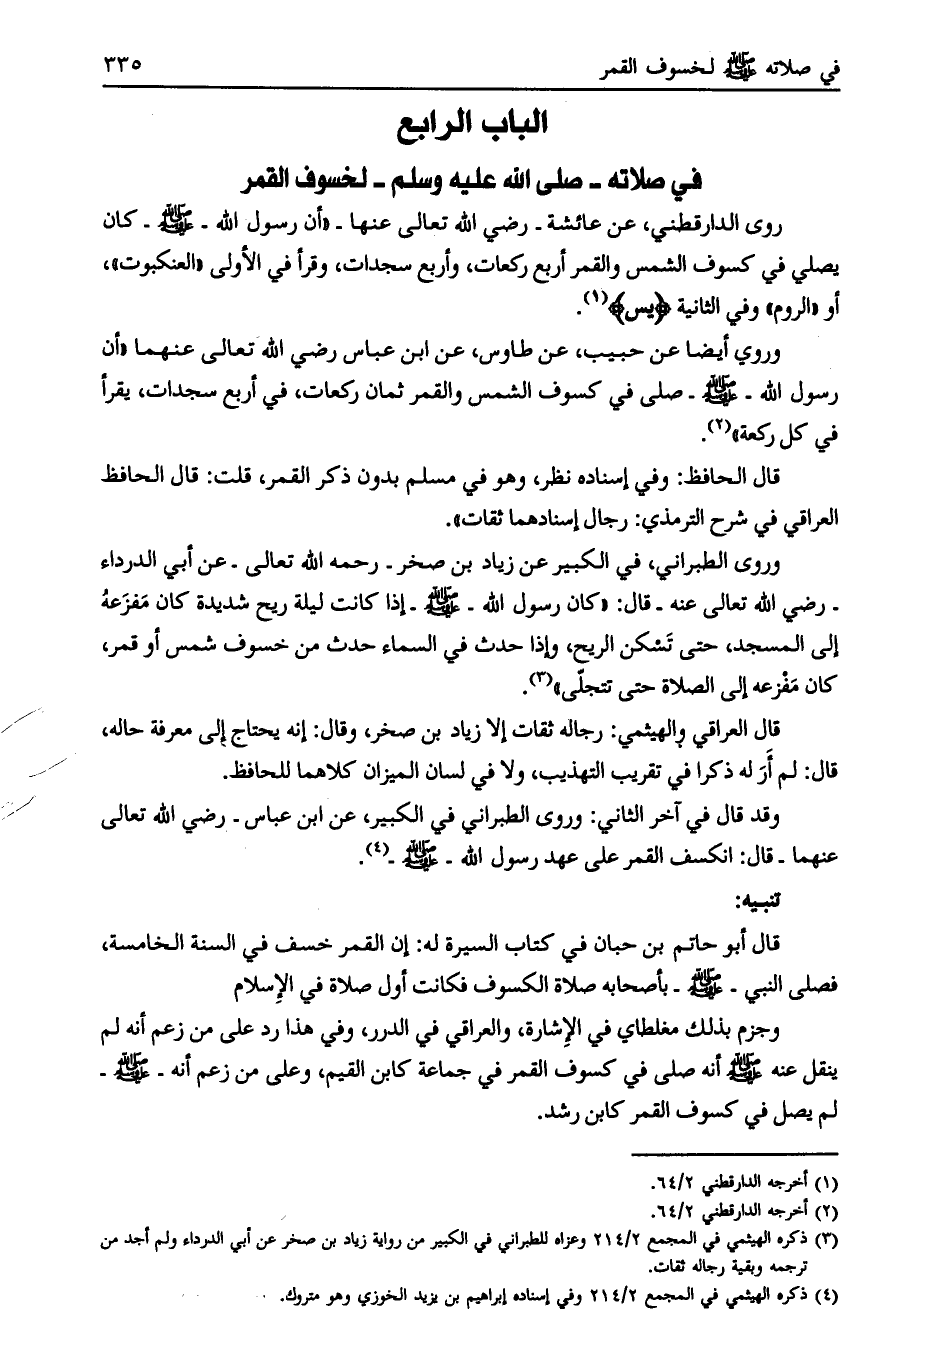 في صلاته ﷺ لخسوف القمر ٣٣٥
الباب الرابع
في صلاته ـ صلى الله عليه وسلم ـ لخسوف القمر
روى الدارقطني، عن عائشة ـ رضي الله تعالى عنها ـ «أن رسول الله ـ ﷺ ـ كان
يصلي في كسوف الشمس والقمر أربع ركعات، وأربع سجدات، وقرأ في الأولى «العنكبوت»،
أو «الروم» وفي الثانية ﴿يس﴾(١).
وروي أيضا عن حبيب، عن طاوس، عن ابن عباس رضي الله تعالى عنهما «أن
رسول الله ـ ﷺ ـ صلى في كسوف الشمس والقمر ثمان ركعات، في أربع سجدات، يقرأ
في كل ركعة»(٢).
قال الحافظ: وفي إسناده نظر، وهو في مسلم بدون ذكر القمر، قلت: قال الحافظ
العراقي في شرح الترمذي: رجال إسنادهما ثقات».
وروى الطبراني، في الكبير عن زياد بن صخر ـ رحمه الله تعالى ـ عن أبي الدرداء
ـ رضي الله تعالى عنه ـ قال: «كان رسول الله ـ ﷺ ـ إذا كانت ليلة ريح شديدة كان مَفزَعهُ
إلى المسجد، حتى تَسْكن الريح، وإذا حدث في السماء حدث من خسوف شمس أو قمر،
كان مَفْزعه إلى الصلاة حتى تتجلّى»(٣).
قال العراقي والهيثمي: رجاله ثقات إلا زياد بن صخر، وقال: إنه يحتاج إلى معرفة حاله،
قال: لم أَرَ له ذكرا في تقريب التهذيب، ولا في لسان الميزان كلاهما للحافظ.
وقد قال في آخر الثاني: وروى الطبراني في الكبير، عن ابن عباس ـ رضي الله تعالى
عنهما ـ قال: انكسف القمر على عهد رسول الله ـ ﷺ ـ(٤).
تنبيه:
قال أبو حاتم بن حبان في كتاب السيرة له: إن القمر خسف في السنة الخامسة،
فصلى النبي ـ ﷺ ـ بأصحابه صلاة الكسوف فكانت أول صلاة في الإسلام
وجزم بذلك مغلطاي في الإشارة، والعراقي في الدرر، وفي هذا رد على من زعم أنه لم
ينقل عنه ﷺ أنه صلى في كسوف القمر في جماعة كابن القيم، وعلى من زعم أنه ـ ﷺ ـ
لم يصل في كسوف القمر كابن رشد.
(١) أخرجه الدارقطني ٦٤/٢.
(٢) أخرجه الدارقطني ٦٤/٢.
(٣) ذكره الهيثمي في المجمع ٢١٤/٢ وعزاه للطبراني في الكبير من رواية زياد بن صخر عن أبي الدرداء ولم أجد من
ترجمه وبقية رجاله ثقات.
(٤) ذكره الهيثمي في المجمع ٢١٤/٢ وفي إسناده إبراهيم بن يزيد الخوزي وهو متروك.